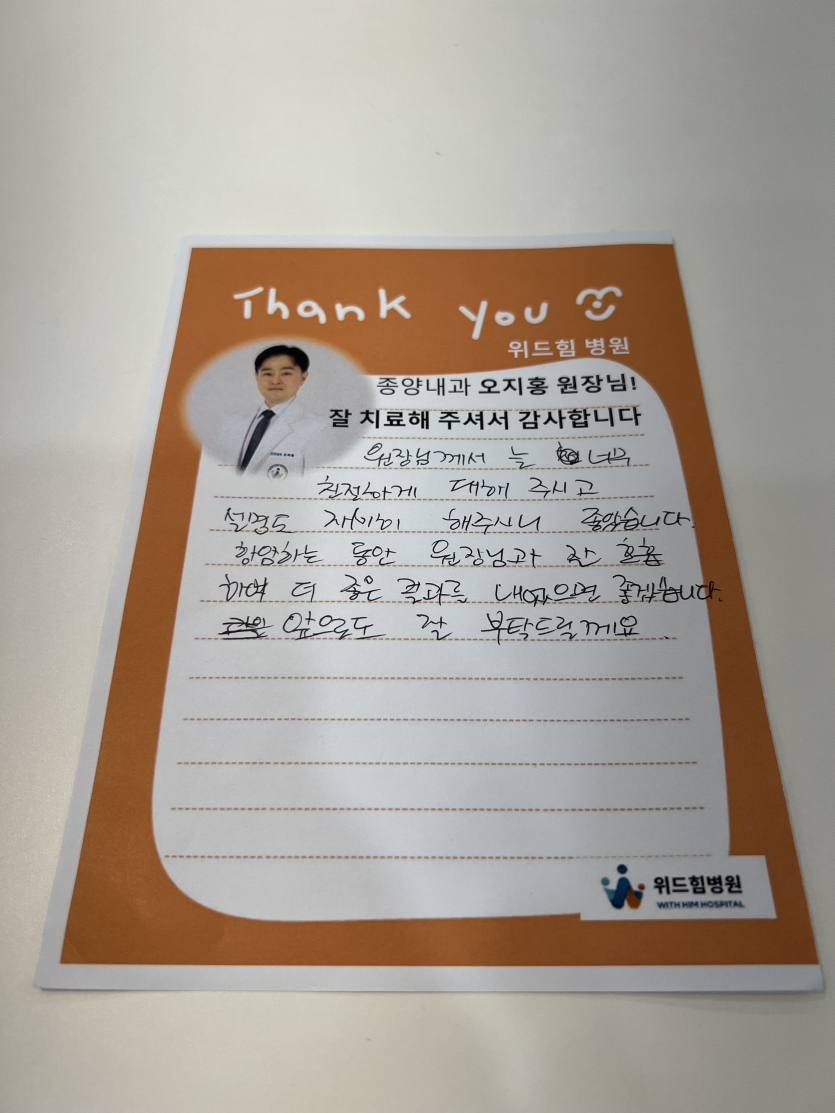 Thank you
위드힘 병원
종양내과 오지홍 원장님!
잘 치료해 주셔서 감사합니다
원장님께서 늘 너무
친절하게 대해 주시고
설명도 자세히 해주시니 좋았습니다.
항암하는 동안 원장님과 잘 호흡
하여 더 좋은 결과를 내었으면 좋겠습니다.
앞으로도 잘 부탁드릴께요.
위드힘병원
WITH HIM HOSPITAL